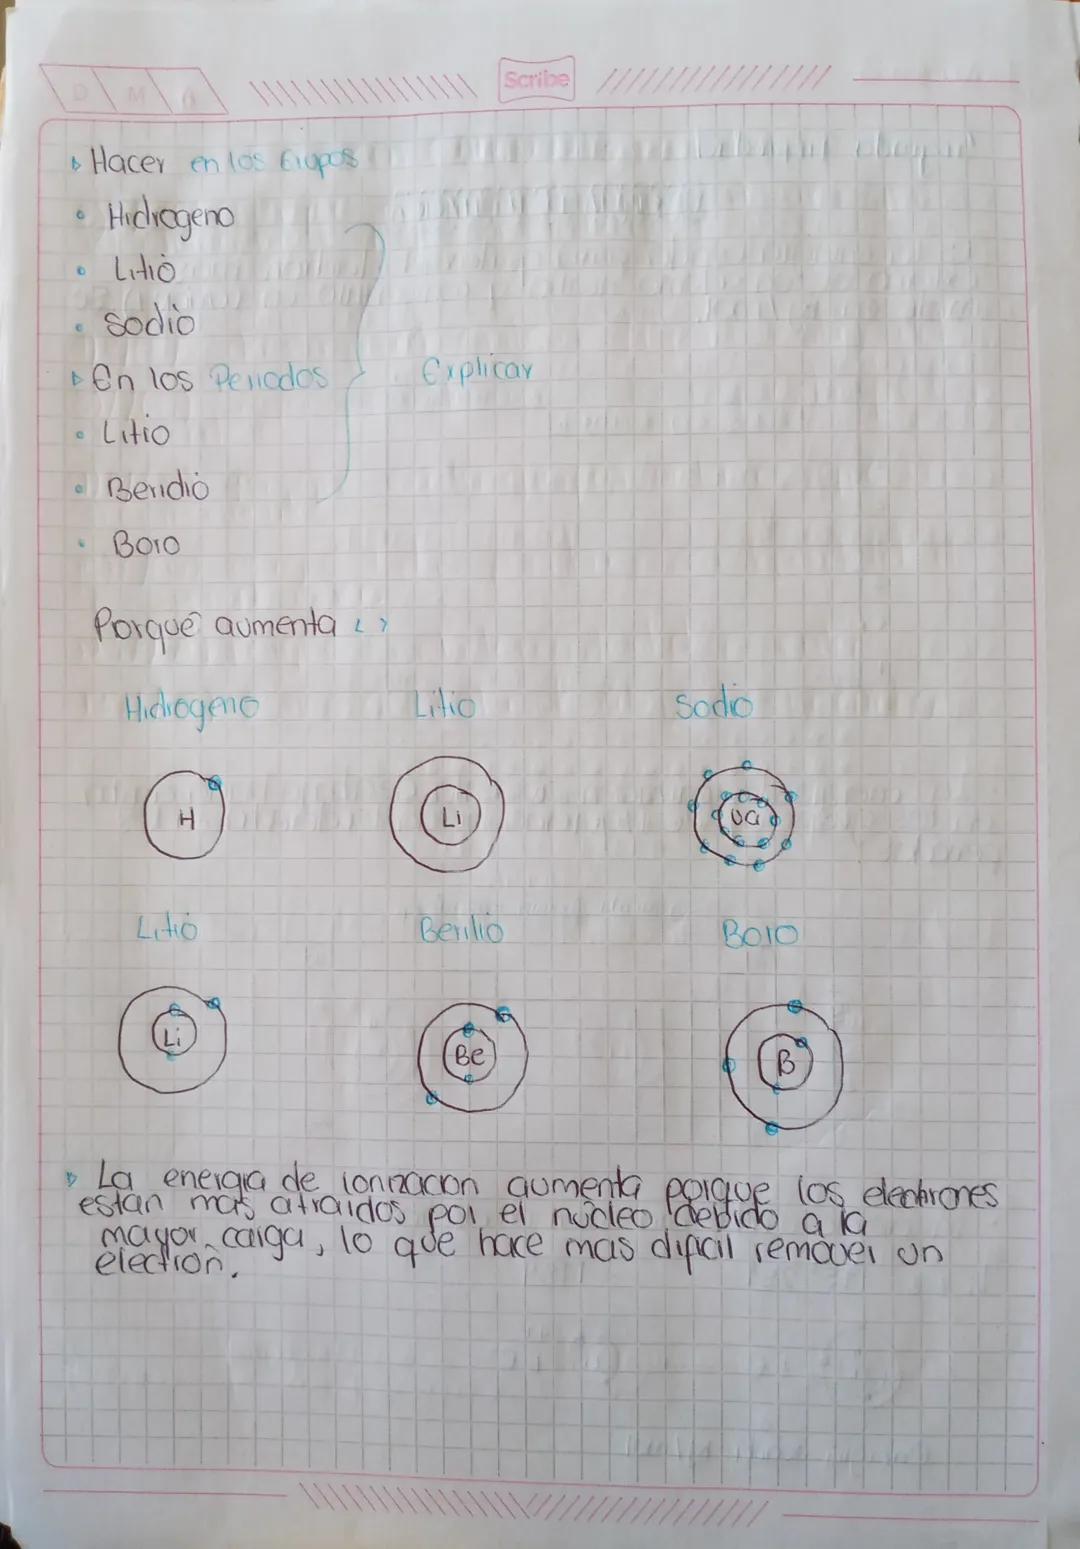 D M A
Scribe
Hacer en los Grupos
Hidrogeno
Litio
Sodio
En los Periodos
Explicar
Litio
Beridio
Boro
Porque aumenta ¿ ?
Hidrogeno Litio Sodio
H Li Na
Litio Berilio Boro
Li Be B
La energia de ionizacion aumenta porque los electrones
estan mas atraidos por el nucleo debido a la
mayor carga, lo que hace mas dificil remover un
electron.